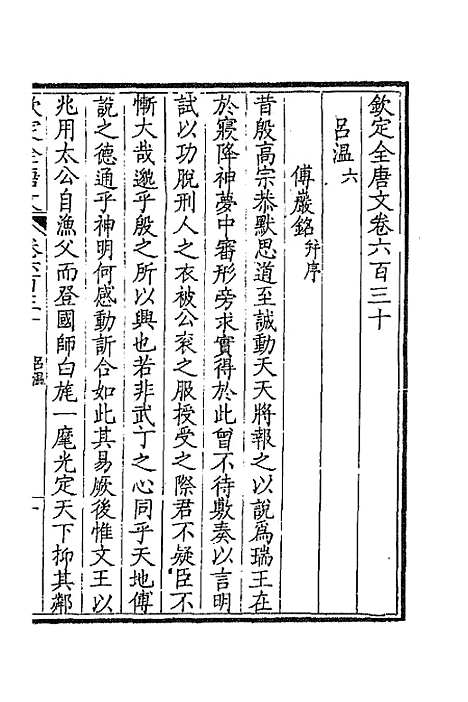 欽定全唐文卷六百三十
呂溫六
傅巖銘并序
昔殷高宗恭默思道至誠動天天將報之以說爲瑞王在
於寢降神夢中審形旁求實得於此曾不待敷奏以言明
試以功脫刑人之衣被公衮之服授受之際君不疑臣不
慚大哉邈乎殷之所以興也若非武丁之心同乎天地傅
說之德通乎神明何感動訢合如此其易厥後惟文王以
兆用太公自漁父而登國師白旄一麾光定天下抑其鄰
欽定全唐文 卷六百三十 呂溫 一